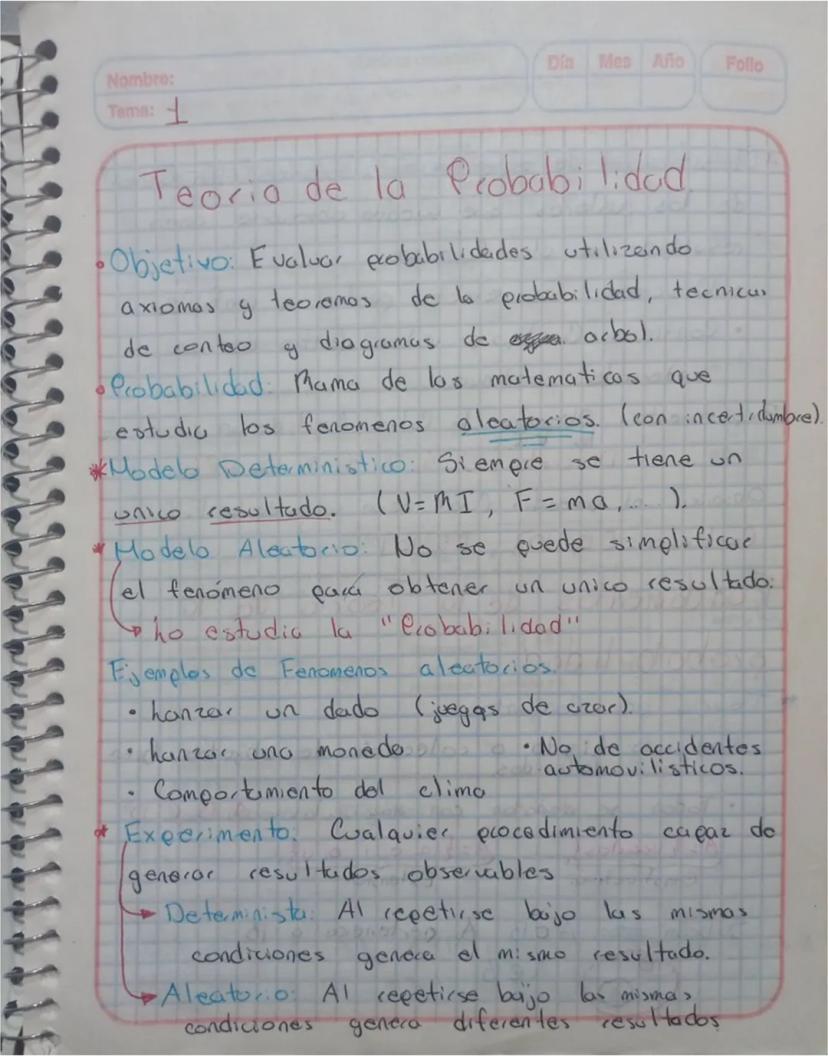 Nombre:
Día Mes Año Folio
Tema: 1
Teoria de la Probabilidad
• Objetivo: Evaluar probabilidades utilizando
axiomas y teoremas de la probabilidad, tecnicas
de conteo y diagramas de arbol.
• Probabilidad: Rama de las matematicas que
estudia los fenomenos aleatorios. (con incertidumbre).
* Modelo Deterministico: Siempre se tiene un
unico resultado. (V=RI, F=ma,...).
* Modelo Aleatorio: No se puede simplificar
el fenómeno para obtener un unico resultado.
Lo estudia la "Probabilidad"
Ejemplos de Fenomenos aleatorios.
• Lanzar un dado (juegos de azar).
• Lanzar una moneda • No. de accidentes
automovilisticos.
• Comportamiento del clima
* Experimento: Cualquier procedimiento capaz de
generar resultados observables
Determinista: Al repetirse bajo las mismas
condiciones genera el mismo resultado.
Aleatorio: Al repetirse bajo las mismas
condiciones genera diferentes resultados